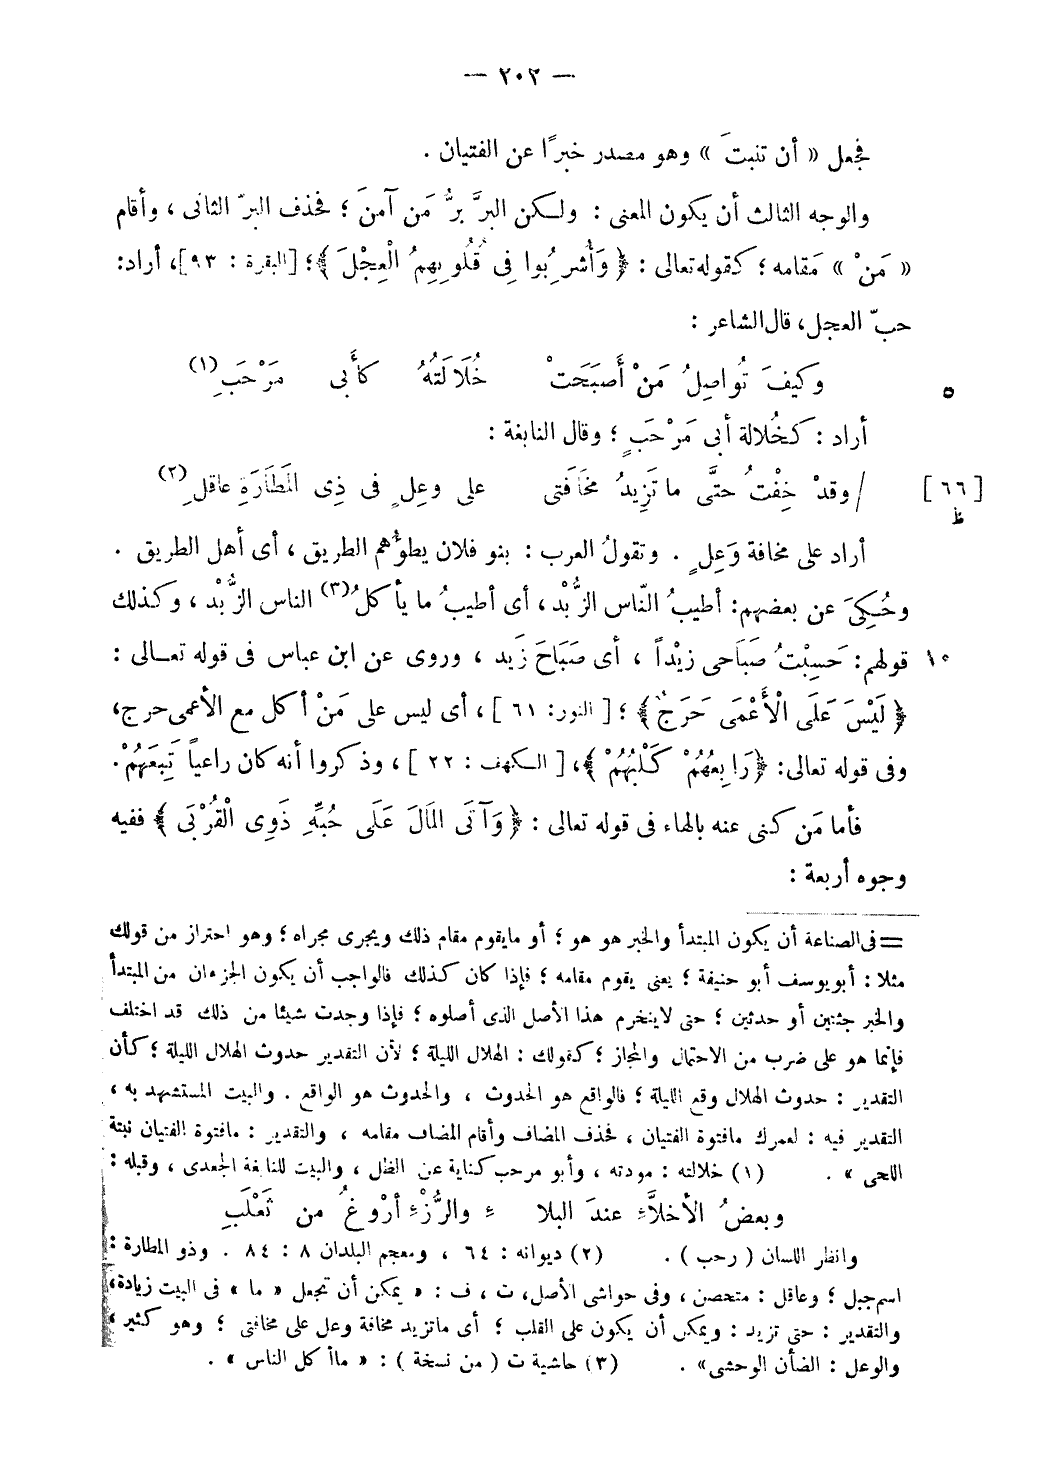 — ٢٠٢ —
فجعل « أن تنبتَ » وهو مصدر خبرًا عن الفتيان .
والوجه الثالث أن يكون المعنى : ولـكن البرَّ برُّ مَن آمنَ ؛ فحذف البرّ الثانى ، وأقام
« مَنْ » مَقامه ؛ كقوله تعالى : ﴿ وَأُشْرِبُوا فِى قُلُوبِهِمُ الْعِجْلَ ﴾؛ [البقرة : ٩٣]، أراد:
حبّ العجل، قال الشاعر :
وكيفَ تُواصِلُ مَنْ أَصبَحَتْ خُلَالَتُهُ كأبى مَرْحَبِ(١)
٥
أراد : كخُلالة أبى مَرْحَبٍ ؛ وقال النابغة :
/ وقدْ خِفْتُ حتَّى ما تَزِيدُ مخَافَتى على وعِلٍ فى ذِى المَطَارَةِ عاقلِ(٢)
[٦٦]
ظ
أراد على مخافة وَعِلٍ . وتقولُ العرب : بنو فلان يطؤُهم الطريق ، أى أهل الطريق .
وحُكِىَ عن بعضهم: أطيبُ النّاس الزُّبْد ، أى أطيبُ ما يأكلُ(٣) الناس الزُّبْد ، وكذلك
١٠ قولهم: حَسِبْتُ صَبَاحى زيْداً ، أى صَبَاحَ زَيد ، وروى عن ابن عباس فى قوله تعـالى :
﴿ لَيْسَ عَلَى الْأَعْمَى حَرَجٌ ﴾ ؛ [ النور: ٦١ ] ، أى ليس على مَنْ أكل مع الأعمى حرج،
وفى قوله تعالى: ﴿رَابِعُهُمْ كَلْبُهُمْ ﴾، [ الـكهف : ٢٢ ]، وذكروا أنه كان راعياً تَبِعَهُمْ.
فأما مَن كنى عنه بالهاء فى قوله تعالى : ﴿ وَآتَى المَالَ عَلَى حُبِّهِ ذَوِى الْقُرْبَى ﴾ ففيه
وجوه أربعة :
= فى الصناعة أن يكون المبتدأ والخبر هو هو ؛ أو مايقوم مقام ذلك ويجرى مجراه ؛ وهو احتراز من قولك
مثلا : أبو يوسف أبو حنيفة ؛ يعنى يقوم مقامه ؛ فإذا كان كذلك فالواجب أن يكون الجزءان من المبتدأ
والخبر جثتين أو حدثين ؛ حتى لاينخرم هذا الأصل الذى أصلوه ؛ فإذا وجدت شيئا من ذلك قد اختلف
فإنما هو على ضرب من الاحتمال والمجاز ؛ كقولك : الهلال الليلة ؛ لأن التقدير حدوث الهلال الليلة ؛ كأن
التقدير : حدوث الهلال وقع الليلة ؛ فالواقع هو الحدوث ، والحدوث هو الواقع . والبيت المستشهد به ،
التقدير فيه : لعمرك مافتوة الفتيان ، فحذف المضاف وأقام المضاف مقامه ، والتقدير : مافتوة الفتيان نبتة
اللحى » . (١) خلالته : مودته ، وأبو مرحب كناية عن الظل ، والبيت للنابغة الجعدى ، وقبله :
وبعضُ الأخلَّاءِ عندَ البلا ءِ والرُّزْءِ أرْوغُ من ثَعْلَبِ
وانظر اللسان ( رحب ) . (٢) ديوانه : ٦٤ ، ومعجم البلدان ٨ : ٨٤ . وذو المطارة :
اسم جبل ؛ وعاقل : متحصن ، وفى حواشى الأصل، ت ، ف : « يمكن أن تجعل « ما » فى البيت زيادة،
والتقدير : حتى تزيد : ويمكن أن يكون على القلب ؛ أى ماتزيد مخافة وعل على مخافتى ؛ وهو كثير ،
والوعل : الضأن الوحشى» . (٣) حاشية ت ( من نسخة ) : « ماأ كل الناس » .